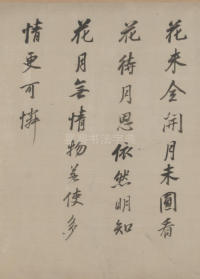 花來全開月未圓看
花待月思依然明知
花月無情物若使多
情更可憐